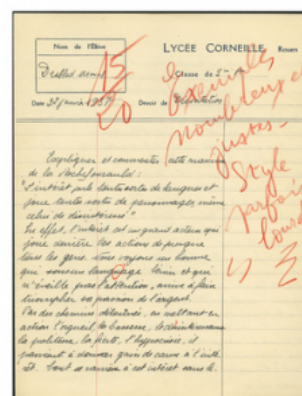 Nom de l'Élève
LYCÉE CORNEILLE, Rouen
15
20
Classe de
Date 30 janvier 1937
Devoir de
Exemples
nombreux et
justes.
Style
parfois
lourd
Expliquer et commenter cette maxime
de La Rochefoucauld :
"L'intérêt parle toutes sortes de langues et
joue toutes sortes de personnages, même
celui de désintéressé"
En effet, l'intérêt est un grand acteur qui
joue derrière les actions de presque
tous les gens. Nous voyons un homme
que son langage bénin et qui
n'éveille pas l'attention, arrive à faire
triompher sa passion de l'argent.
Par des chemins détournés, en mettant en
action l'orgueil, la bassesse,
la politesse, la fierté, l'hypocrisie, il
parvient à donner gain de cause à l'inté-
rêt.